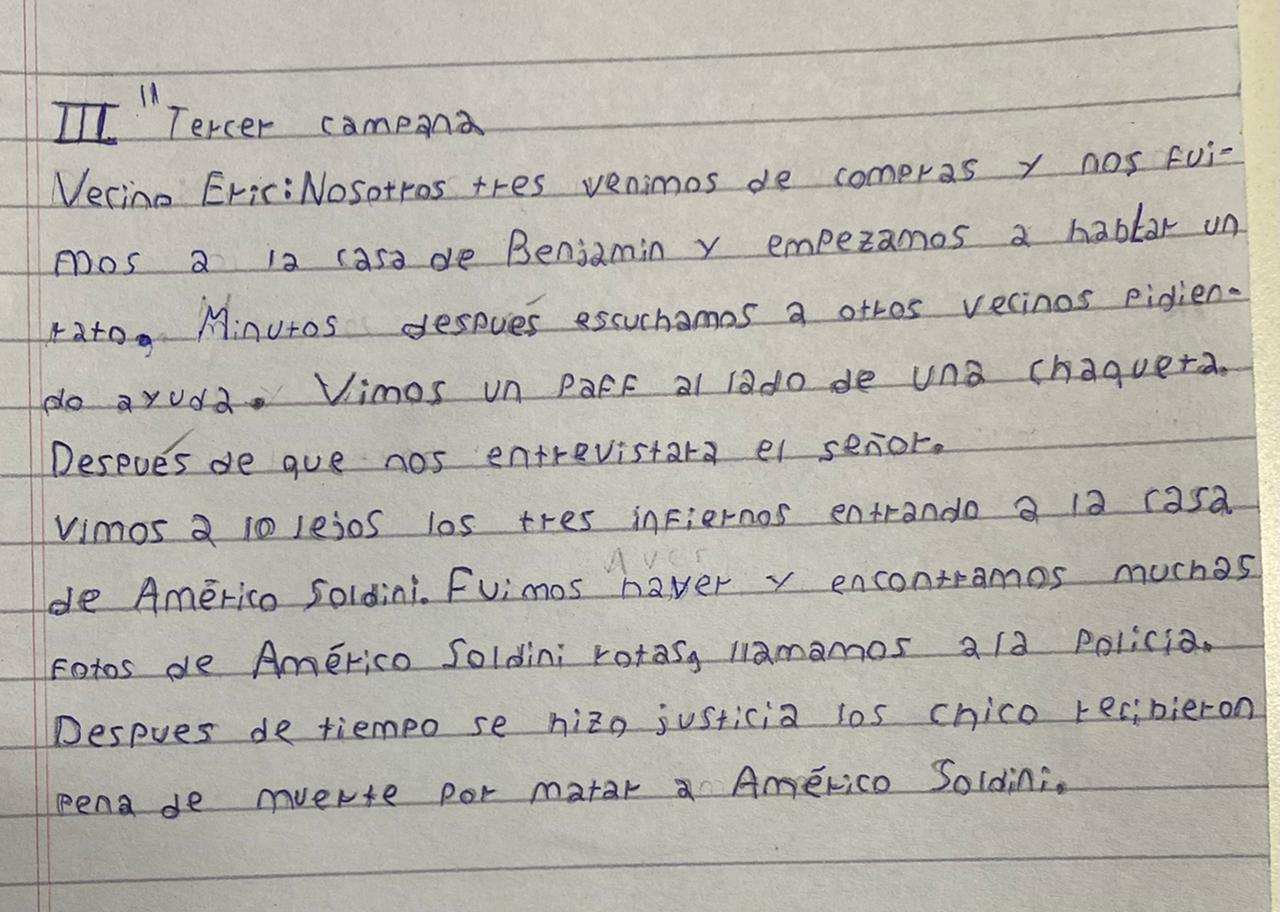 III "Tercer campana
Vecino Eric: Nosotros tres venimos de compras y nos fui-
mos a la casa de Benjamin y empezamos a hablar un
rato. Minutos después escuchamos a otros vecinos pidien-
do ayuda. Vimos un Paff al lado de una chaqueta.
Después de que nos entrevistara el señor.
Vimos a lo lejos los tres infiernos entrando a la casa
Aver
de Américo Soldini. Fuimos haver y encontramos muchas
Fotos de Américo Soldini rotas, llamamos ala Policía.
Despues de tiempo se hizo justicia los chico recibieron
pena de muerte por matar a Américo Soldini.